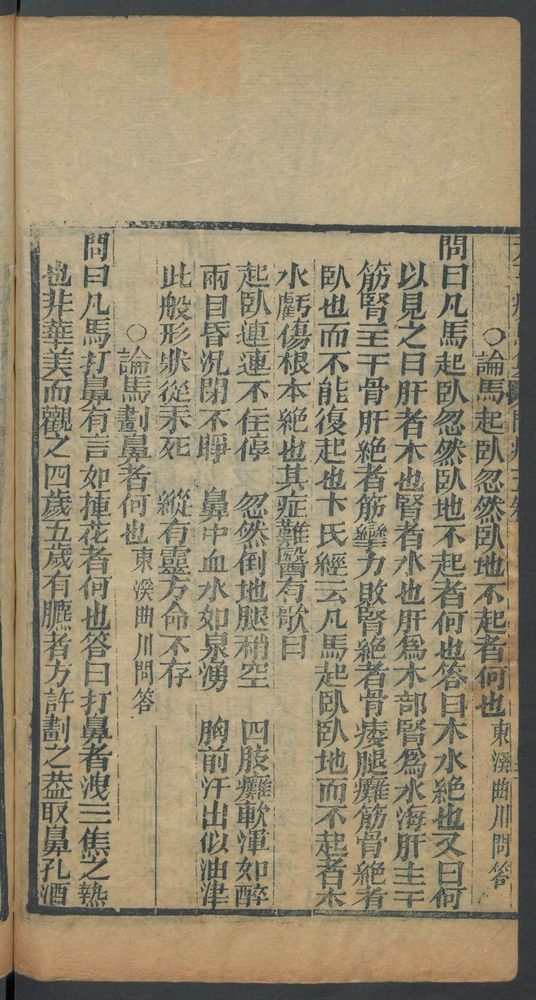 ○論馬起臥忽然臥地不起者何也 東溪曲川問答
問曰凡馬起臥忽然臥地不起者何也答曰木水絶也又曰何
以見之曰肝者木也腎者水也肝爲木部腎爲水海肝主于
筋腎主于骨肝絶者筋攣力敗腎絶者骨痿腿癱筋骨絶者
臥也而不能復起也卞氏經云凡馬起臥臥地而不起者木
水虧傷根本絶也其症難醫有歌曰
起臥連連不住停 忽然倒地腿稍空 四肢癱軟渾如醉
兩目昏況閉不睜 鼻中血水如泉湧 胸前汗出似油津
此般形狀從來死 縱有靈方命不存
○論馬劃鼻者何也 東溪曲川問答
問曰凡馬打鼻有言如揷花者何也答曰打鼻者洩三焦之熱
也非華美而觀之四歲五歲有臕者方許劃之葢取鼻孔酒